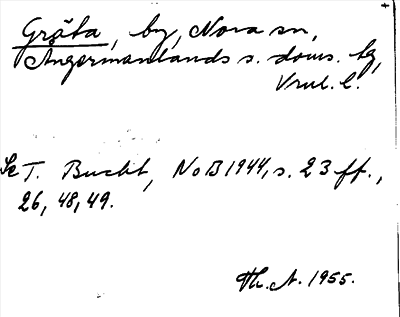 Gräta, by, Nora sn,
Ångermanlands s. doms. bg,
Vrml. l.
Se T. Bucht, NoB 1944, s. 23 ff.,
26, 48, 49.
Th. A. 1955.